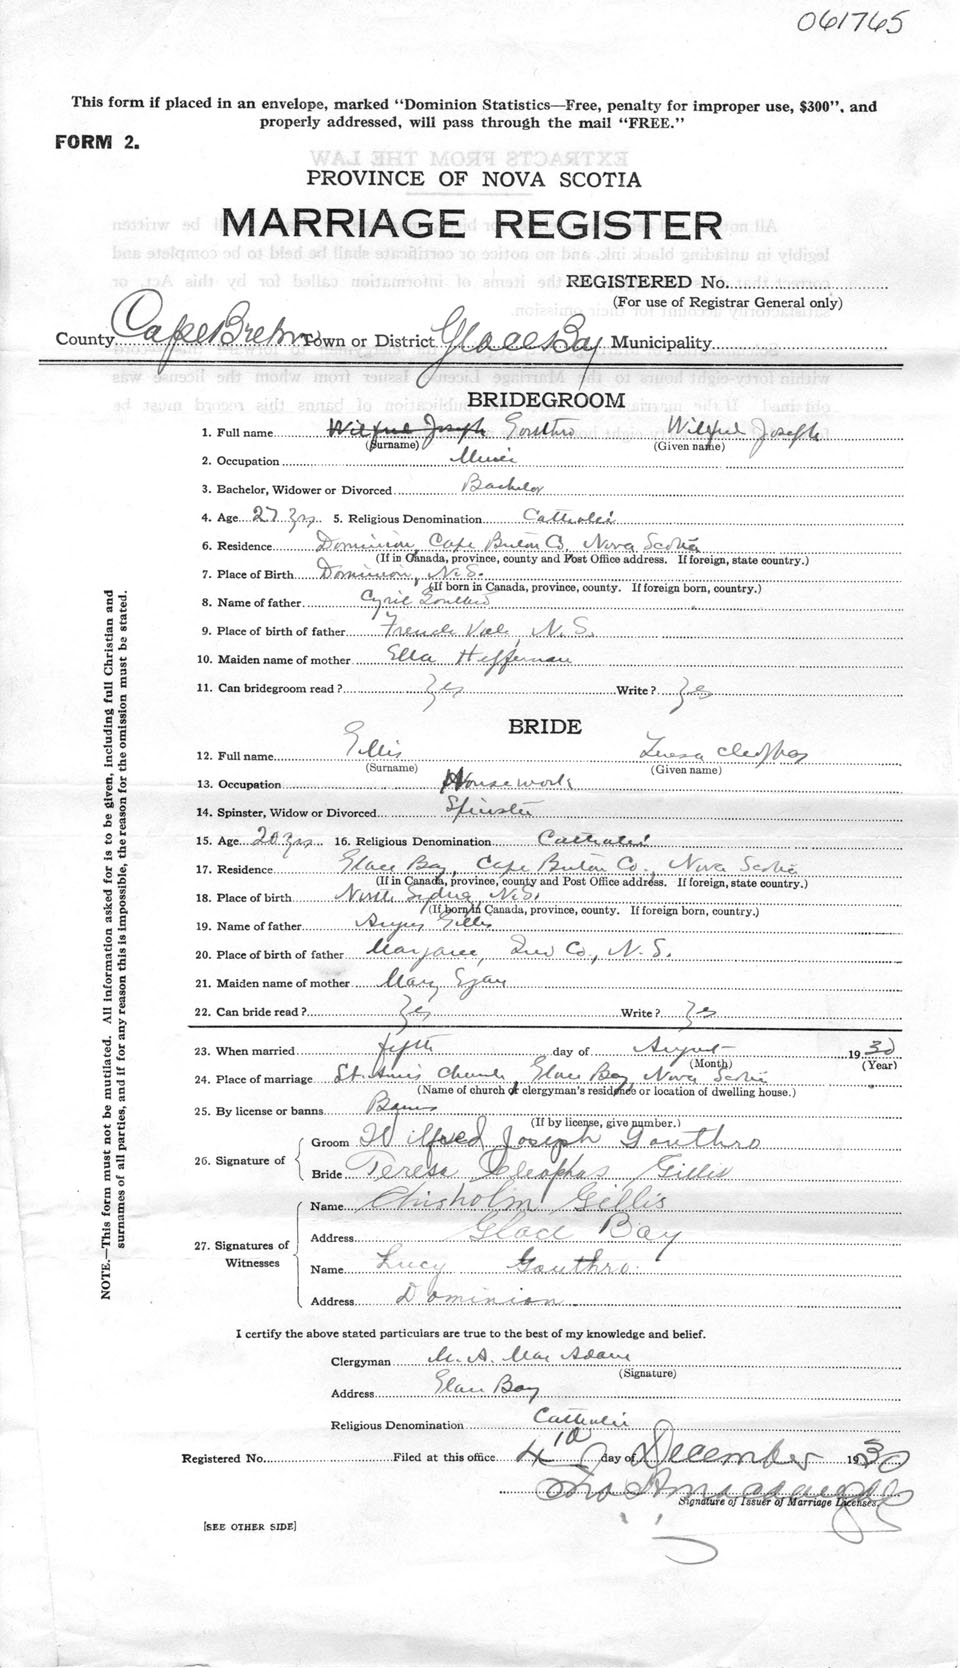 061765
This form if placed in an envelope, marked "Dominion Statistics—Free, penalty for improper use, $300", and
properly addressed, will pass through the mail "FREE."
FORM 2.
PROVINCE OF NOVA SCOTIA
MARRIAGE REGISTER
REGISTERED No.
(For use of Registrar General only)
County Cape Breton Town or District Glace Bay Municipality
BRIDEGROOM
1. Full name Wilfred Joseph Gouthro Wilfred Joseph
(Surname) (Given name)
2. Occupation Miner
3. Bachelor, Widower or Divorced Bachelor
4. Age 27 yrs. 5. Religious Denomination Catholic
6. Residence Dominion, Cape Breton Co. Nova Scotia
(If in Canada, province, county and Post Office address. If foreign, state country.)
7. Place of Birth Dominion, N.S.
(If born in Canada, province, county. If foreign born, country.)
8. Name of father Cyril Gouthro
9. Place of birth of father French Vale, N.S.
10. Maiden name of mother Ella Heffernan
11. Can bridegroom read? Yes Write? Yes
BRIDE
12. Full name Gillis Teresa Cleophas
(Surname) (Given name)
13. Occupation Housework
14. Spinster, Widow or Divorced Spinster
15. Age 20 yrs 16. Religious Denomination Catholic
17. Residence Glace Bay, Cape Breton Co., Nova Scotia
(If in Canada, province, county and Post Office address. If foreign, state country.)
18. Place of birth North Sydney N.S.
(If born in Canada, province, county. If foreign born, country.)
19. Name of father Angus Gillis
20. Place of birth of father Margaree, Inv Co., N.S.
21. Maiden name of mother Mary Egan
22. Can bride read? Yes Write? Yes
23. When married fifth day of August 1930
(Month) (Year)
24. Place of marriage St. Ann's Church, Glace Bay, Nova Scotia
(Name of church or clergyman's residence or location of dwelling house.)
25. By license or banns Banns
(If by license, give number.)
26. Signature of
Groom Wilfred Joseph Gouthro
Bride Teresa Cleophas Gillis
27. Signatures of Witnesses
Name Chisholm Gillis
Address Glace Bay
Name Lucy Gouthro.
Address Dominion.
I certify the above stated particulars are true to the best of my knowledge and belief.
Clergyman M. A. MacAdam
(Signature)
Address Glace Bay
Religious Denomination Catholic
Registered No. Filed at this office 4 day of December 1930
Signature of Issuer of Marriage Licenses.
[SEE OTHER SIDE]
NOTE.—This form must not be mutilated. All information asked for is to be given, including full Christian and
surnames of all parties, and if for any reason this is impossible, the reason for the omission must be stated.